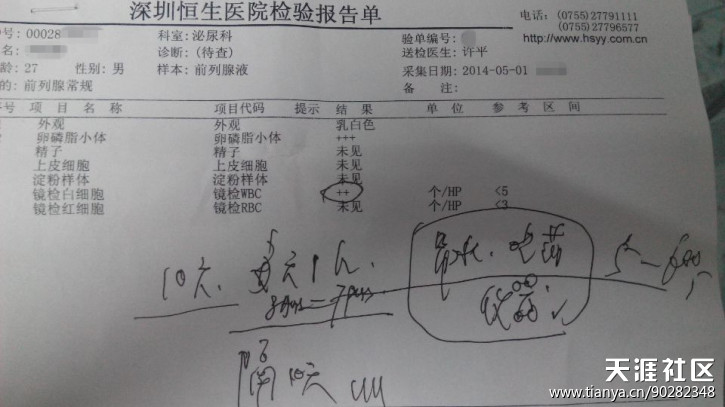 深圳恒生医院检验报告单
电话: (0755)27791111
(0755)27796577
http://www.hsyy.com.cn
号: 00028 科室: 泌尿科 验单编号:
名: 诊断: (待查) 送检医生: 许平
龄: 27 性别: 男 样本: 前列腺液 采集日期: 2014-05-01
的: 前列腺常规 备 注:
号 项 目 名 称 项目代码 提示 结 果 单 位 参 考 区 间
外观 外观 乳白色
卵磷脂小体 卵磷脂小体 +++
精子 精子 未见
上皮细胞 上皮细胞 未见
淀粉样体 淀粉样体 未见
镜检白细胞 镜检WBC ++ 个/HP <5
镜检红细胞 镜检RBC 未见 个/HP <3
10天. 天1次. 吃药
仪器
隔 天
天涯社区
www.tianya.cn/90282348